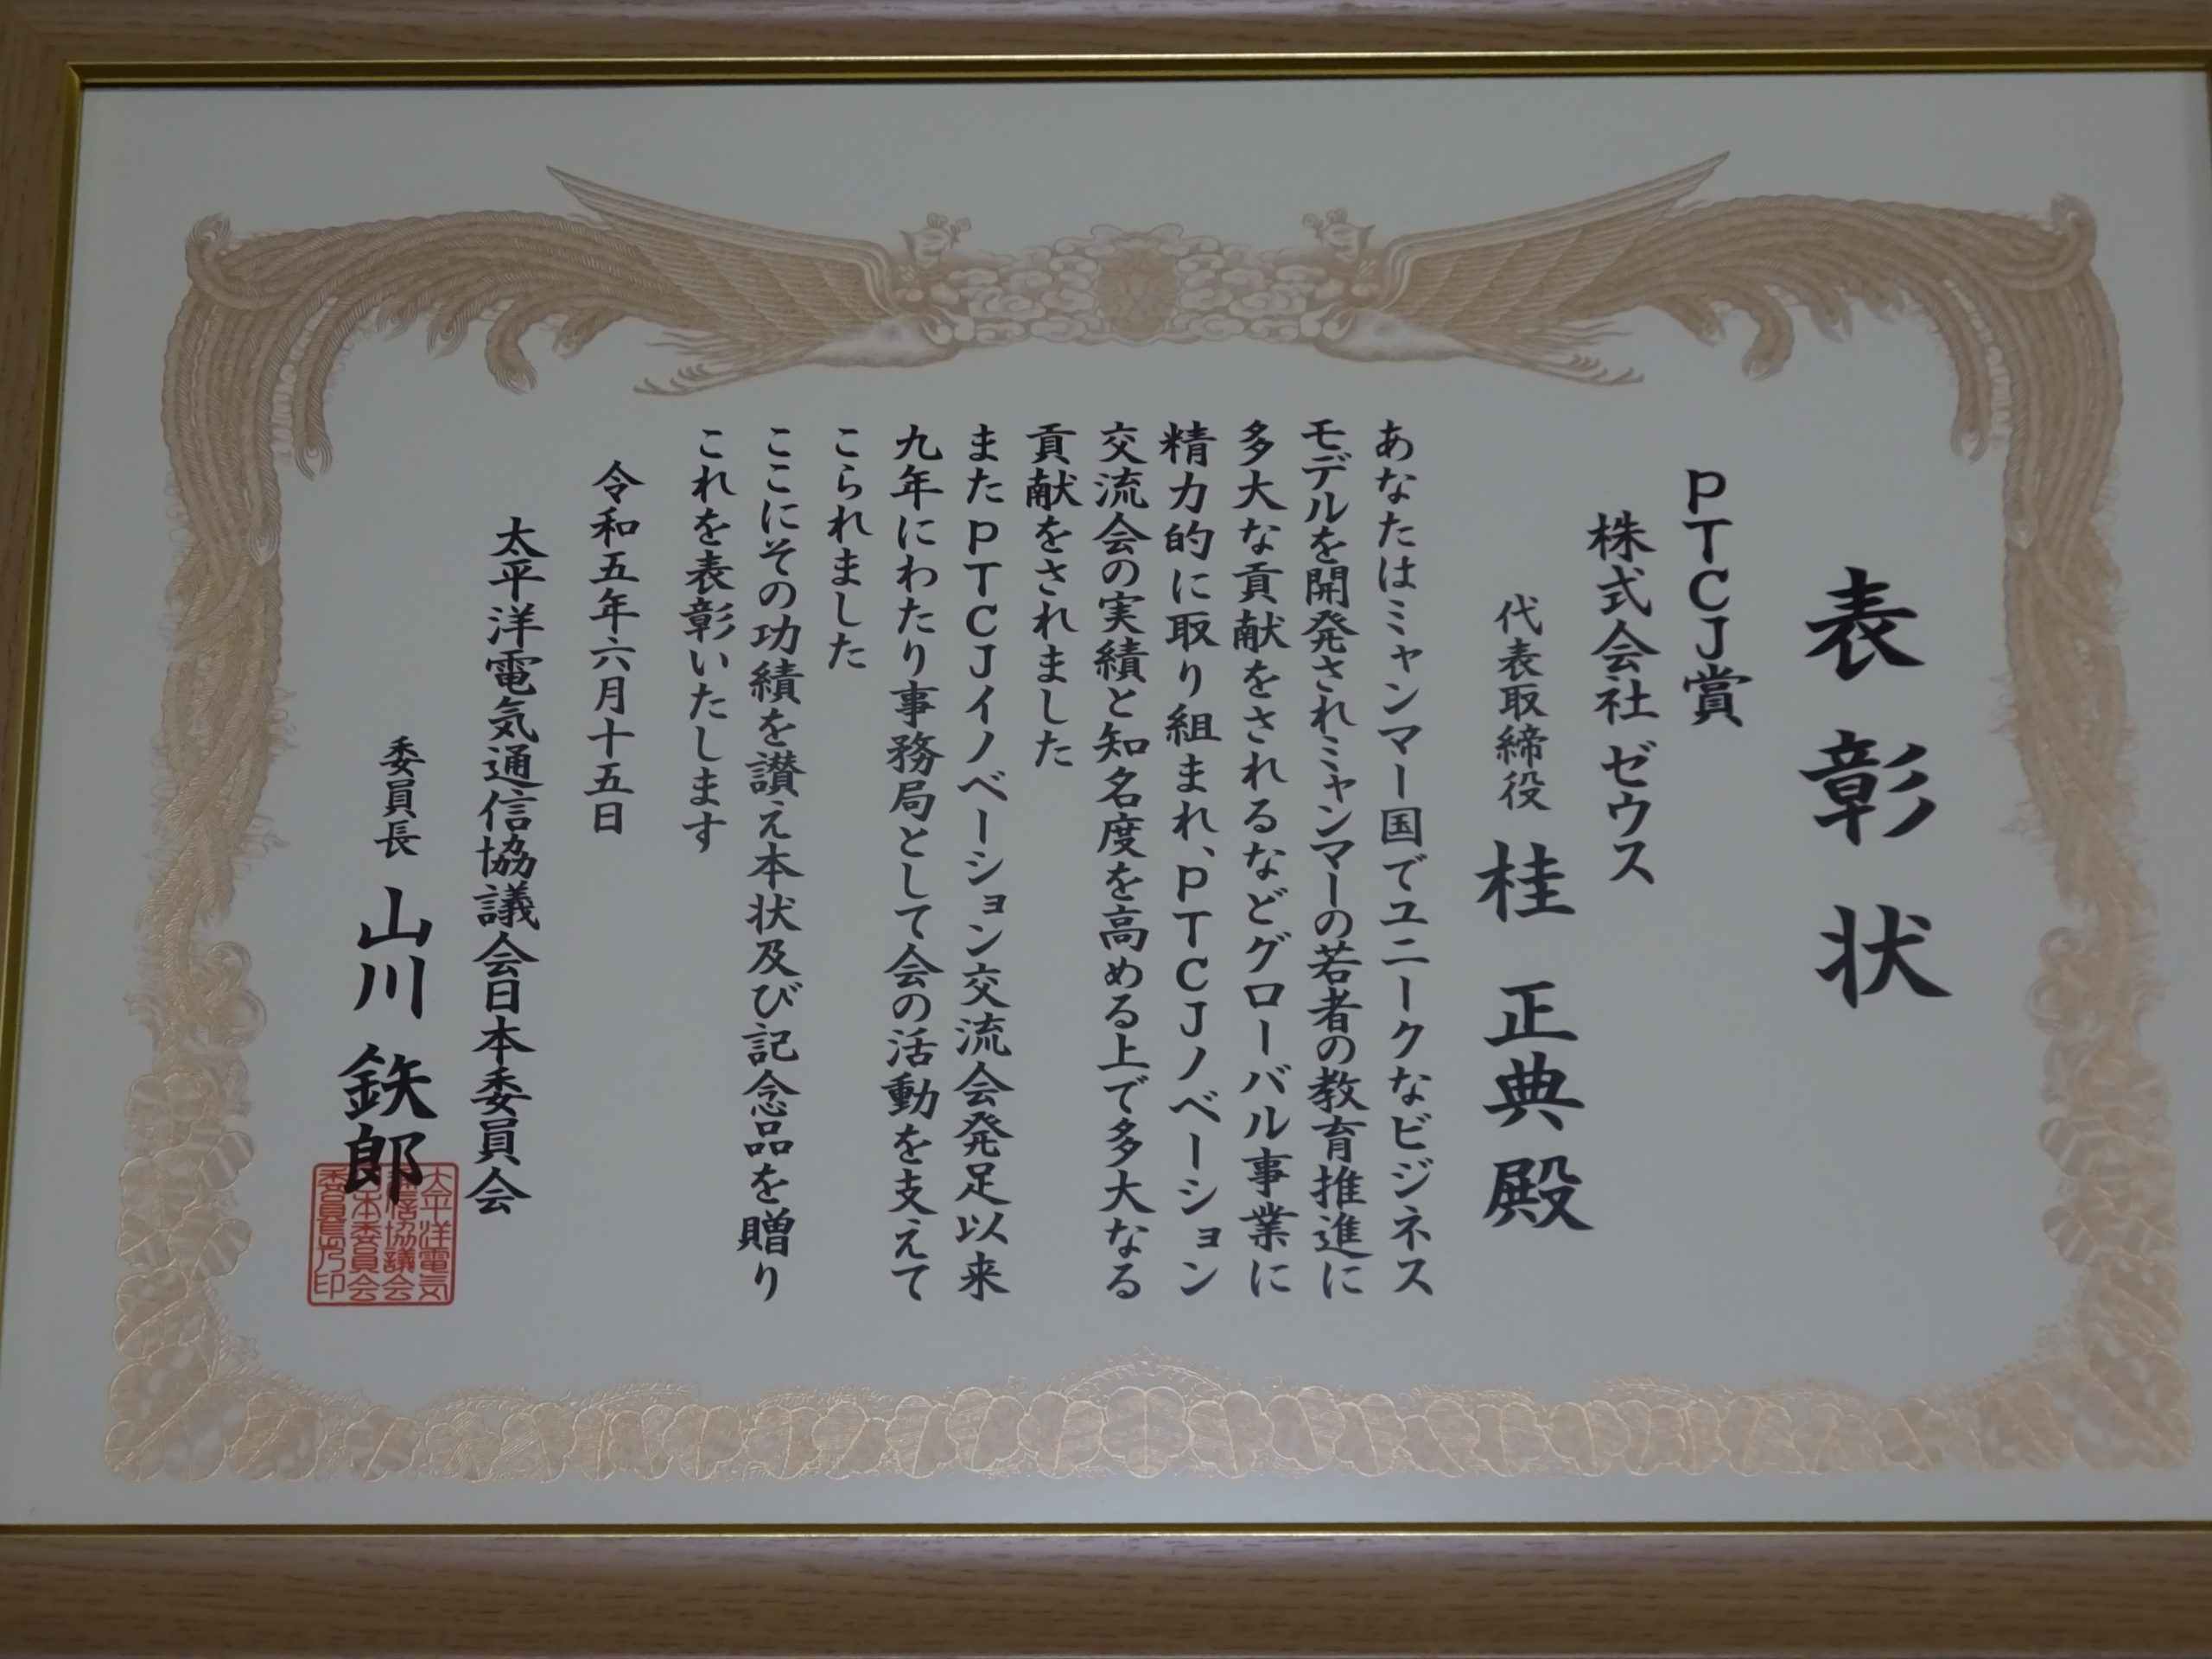 表彰状
PTCJ賞
株式会社ゼウス
代表取締役 桂 正典 殿
あなたはミャンマー国でユニークなビジネス
モデルを開発されミャンマーの若者の教育推進に
多大な貢献をされるなどグローバル事業に
精力的に取り組まれ、PTCJノベーション
交流会の実績と知名度を高める上で多大なる
貢献をされました
またPTCJイノベーション交流会発足以来
九年にわたり事務局として会の活動を支えて
こられました
ここにその功績を讃え本状及び記念品を贈り
これを表彰いたします
令和五年六月十五日
太平洋電気通信協議会日本委員会
委員長 山川 鉄郎
太平洋電気
通信協議会
日本委員会
委員長之印